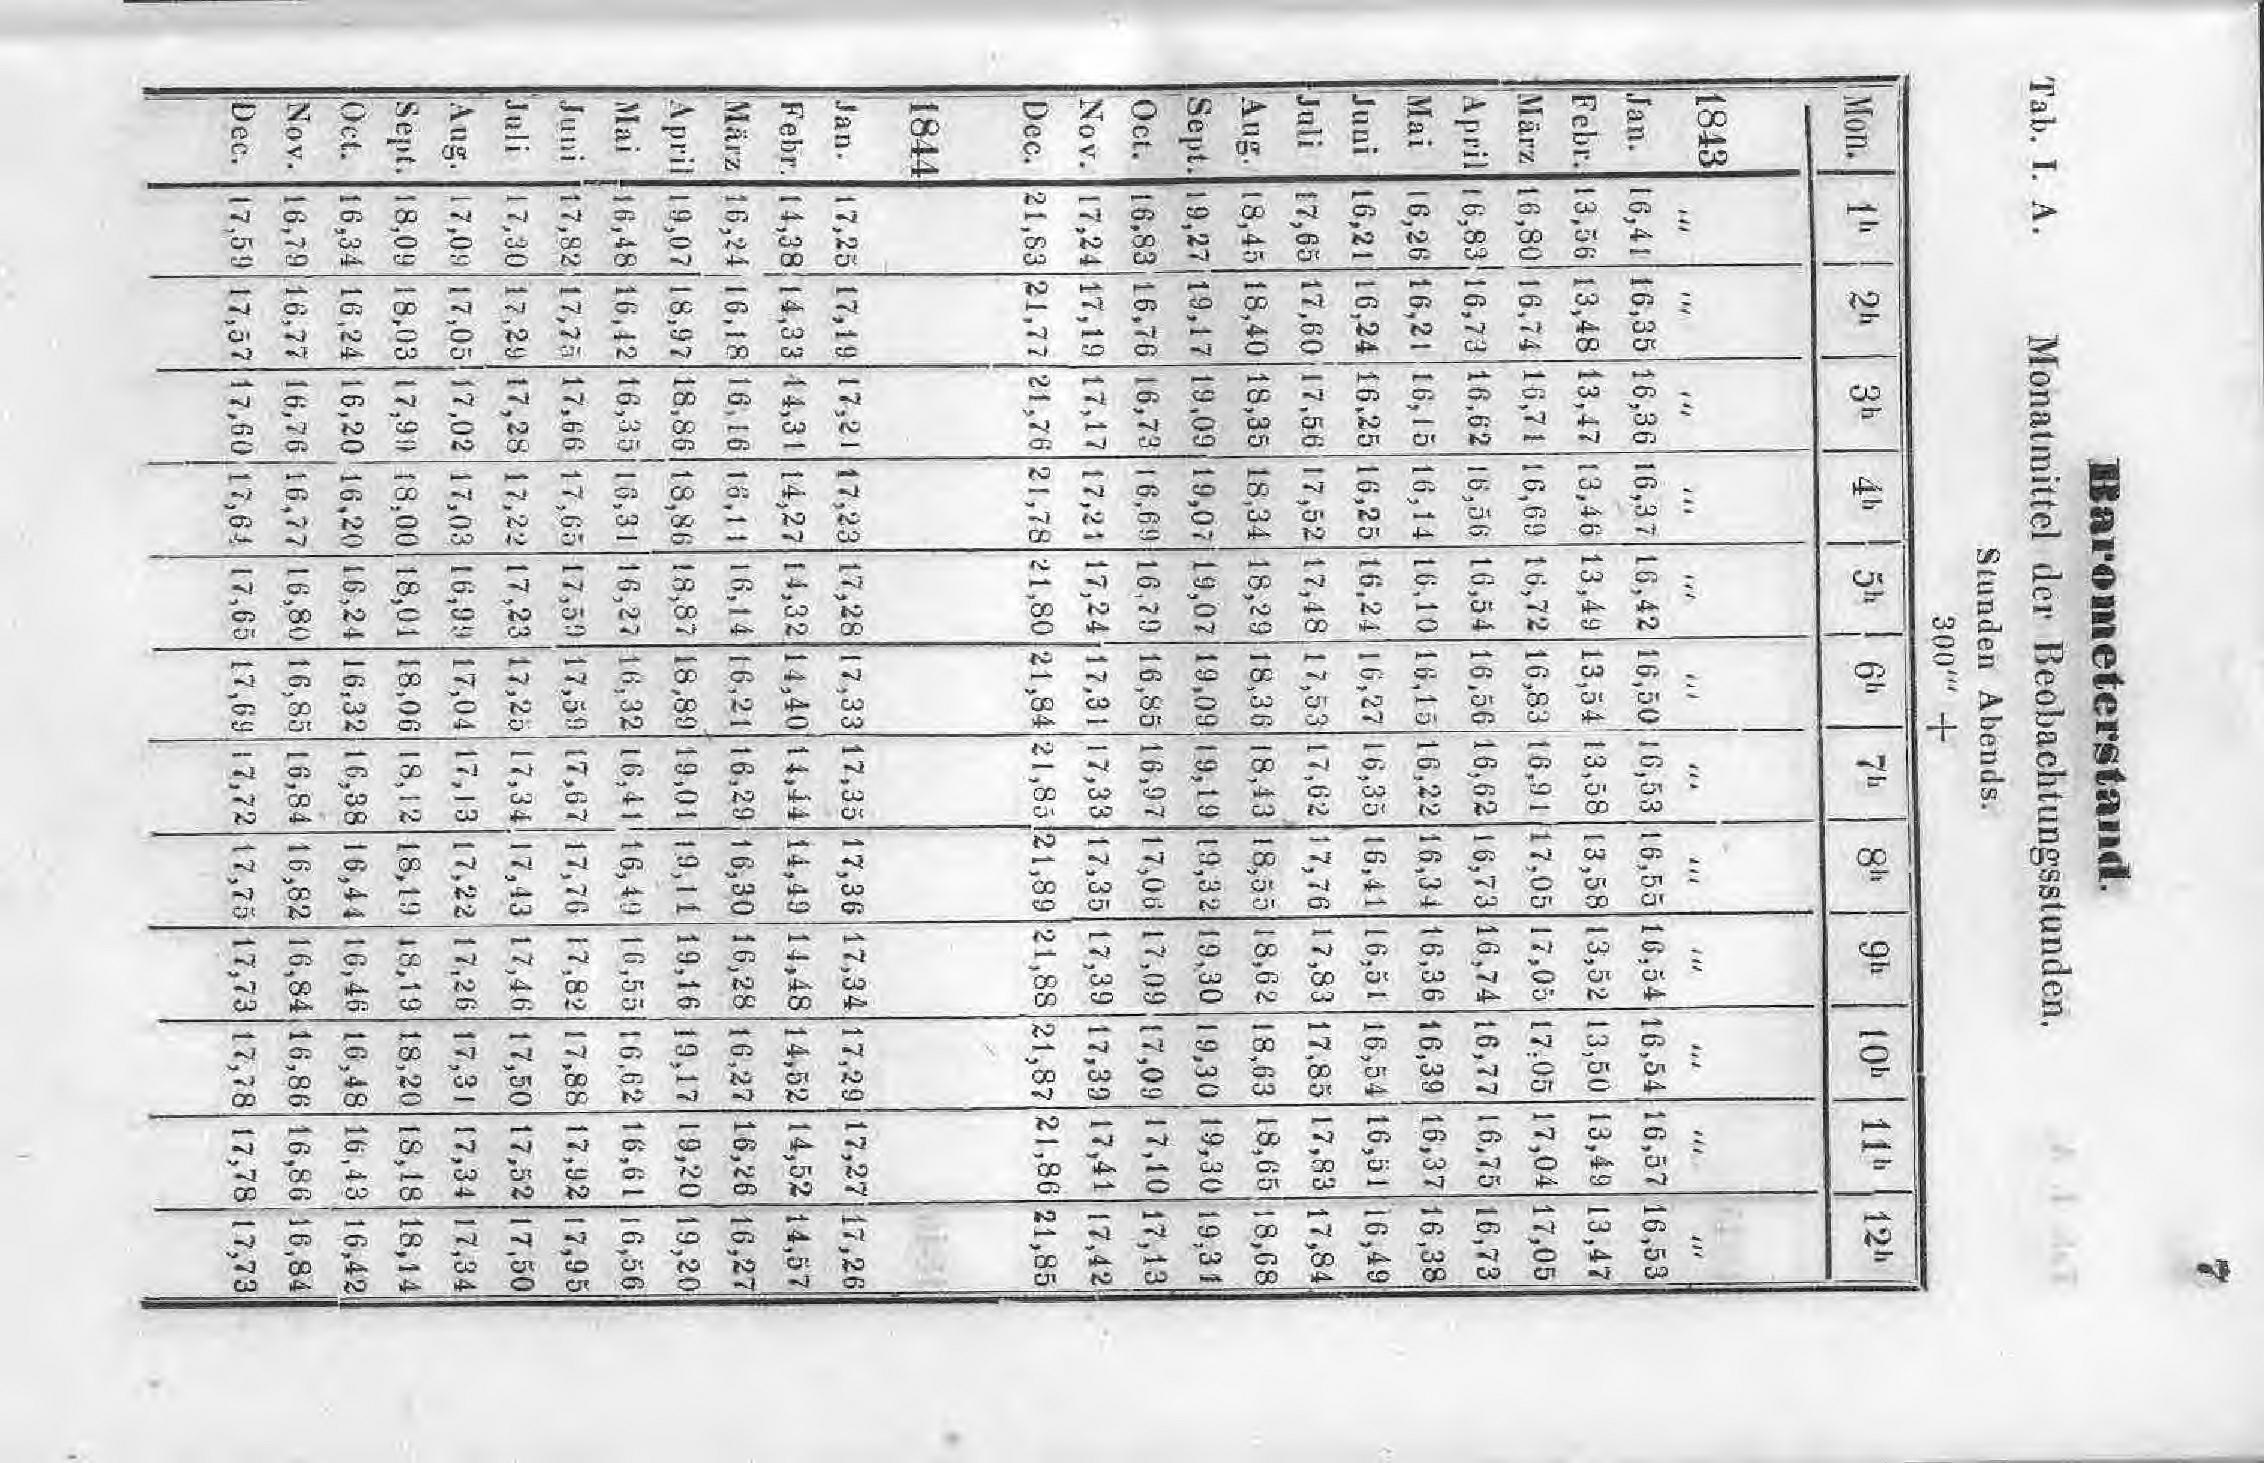 7
Barometerstand.
Tab. I. A. Monatmittel der Beobachtungsstunden.
Stunden Abends.
300''' +
Mon. 1h 2h 3h 4h 5h 6h 7h 8h 9h 10h 11h 12h
1843 ''' ''' ''' ''' ''' ''' ''' ''' ''' ''' ''' '''
Jan. 16,41 16,35 16,36 16,37 16,42 16,50 16,53 16,55 16,54 16,54 16,57 16,53
Febr. 13,56 13,48 13,47 13,46 13,49 13,54 13,58 13,58 13,52 13,50 13,49 13,47
März 16,80 16,74 16,71 16,69 16,72 16,83 16,91 17,05 17,05 17,05 17,04 17,05
April 16,83 16,73 16,62 16,56 16,54 16,56 16,62 16,73 16,74 16,77 16,75 16,73
Mai 16,26 16,21 16,15 16,14 16,10 16,15 16,22 16,34 16,36 16,39 16,37 16,38
Juni 16,21 16,24 16,25 16,25 16,24 16,27 16,35 16,41 16,51 16,54 16,51 16,49
Juli 17,65 17,60 17,56 17,52 17,48 17,53 17,62 17,76 17,83 17,85 17,83 17,84
Aug. 18,45 18,40 18,35 18,34 18,29 18,36 18,43 18,55 18,62 18,63 18,65 18,68
Sept. 19,27 19,17 19,09 19,07 19,07 19,09 19,19 19,32 19,30 19,30 19,30 19,31
Oct. 16,83 16,76 16,73 16,69 16,79 16,85 16,97 17,06 17,09 17,09 17,10 17,13
Nov. 17,24 17,19 17,17 17,21 17,24 17,31 17,33 17,35 17,39 17,39 17,41 17,42
Dec. 21,83 21,77 21,76 21,78 21,80 21,84 21,85 21,89 21,88 21,87 21,86 21,85
1844
Jan. 17,25 17,19 17,21 17,23 17,28 17,33 17,35 17,36 17,34 17,29 17,27 17,26
Febr. 14,38 14,33 14,31 14,27 14,32 14,40 14,44 14,49 14,48 14,52 14,52 14,57
März 16,24 16,18 16,16 16,11 16,14 16,21 16,29 16,30 16,28 16,27 16,26 16,27
April 19,07 18,97 18,86 18,86 18,87 18,89 19,01 19,11 19,16 19,17 19,20 19,20
Mai 16,48 16,42 16,35 16,31 16,27 16,32 16,41 16,49 16,55 16,62 16,61 16,56
Juni 17,82 17,75 17,66 17,65 17,59 17,59 17,67 17,76 17,82 17,88 17,92 17,95
Juli 17,30 17,29 17,28 17,22 17,23 17,25 17,34 17,43 17,46 17,50 17,52 17,50
Aug. 17,09 17,05 17,02 17,03 16,99 17,04 17,13 17,22 17,26 17,31 17,34 17,34
Sept. 18,09 18,03 17,99 18,00 18,01 18,06 18,12 18,19 18,19 18,20 18,18 18,14
Oct. 16,34 16,24 16,20 16,20 16,24 16,32 16,38 16,44 16,46 16,48 16,43 16,42
Nov. 16,79 16,77 16,76 16,77 16,80 16,85 16,84 16,82 16,84 16,86 16,86 16,84
Dec. 17,59 17,57 17,60 17,64 17,65 17,69 17,72 17,75 17,73 17,78 17,78 17,73